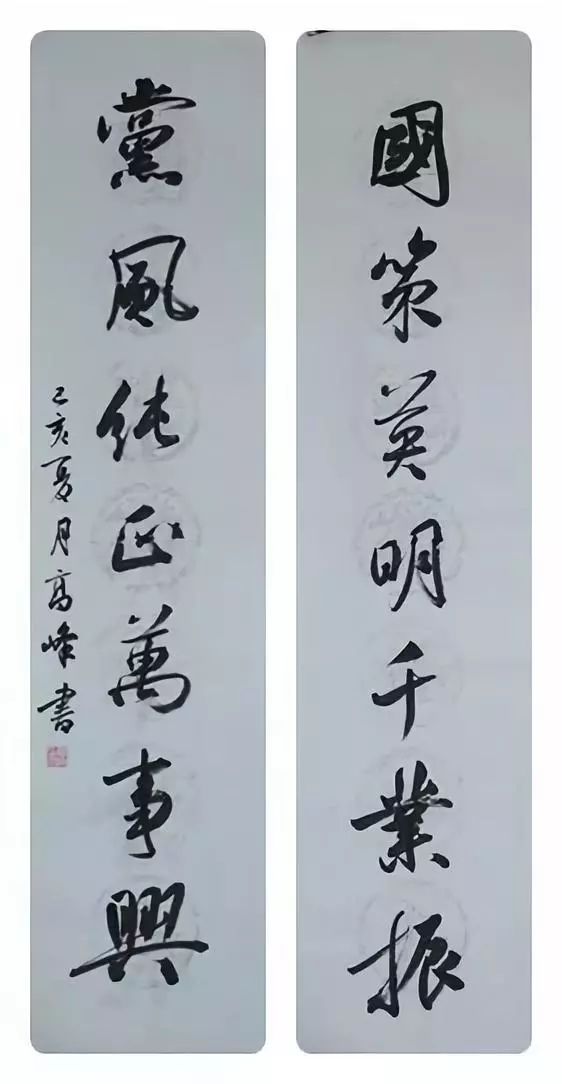 國策英明千業振
黨風純正萬事興
己亥夏月高峰書